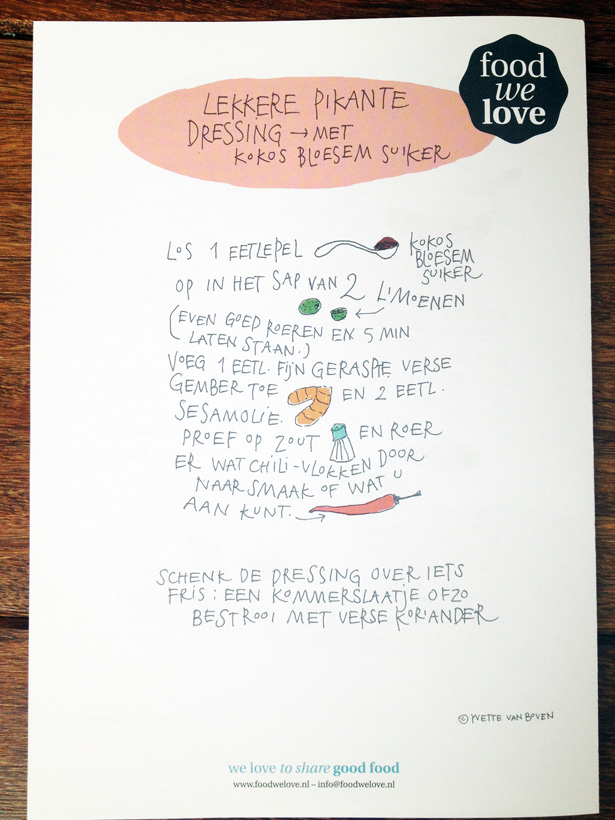 food
we
love
LEKKERE PIKANTE
DRESSING → MET
KOKOS BLOESEM SUIKER
LOS 1 EETLEPEL KOKOS
BLOESEM
SUIKER
OP IN HET SAP VAN 2 LIMOENEN
(EVEN GOED ROEREN EN 5 MIN
LATEN STAAN.)
VOEG 1 EETL. FIJN GERASPTE VERSE
GEMBER TOE EN 2 EETL.
SESAMOLIE.
PROEF OP ZOUT EN ROER
ER WAT CHILI-VLOKKEN DOOR
NAAR SMAAK OF WAT U
AAN KUNT.
SCHENK DE DRESSING OVER IETS
FRIS: EEN KOMMERSLAATJE OFZO
BESTROOI MET VERSE KORIANDER
© YVETTE VAN BOVEN
we love to share good food
www.foodwelove.nl – info@foodwelove.nl